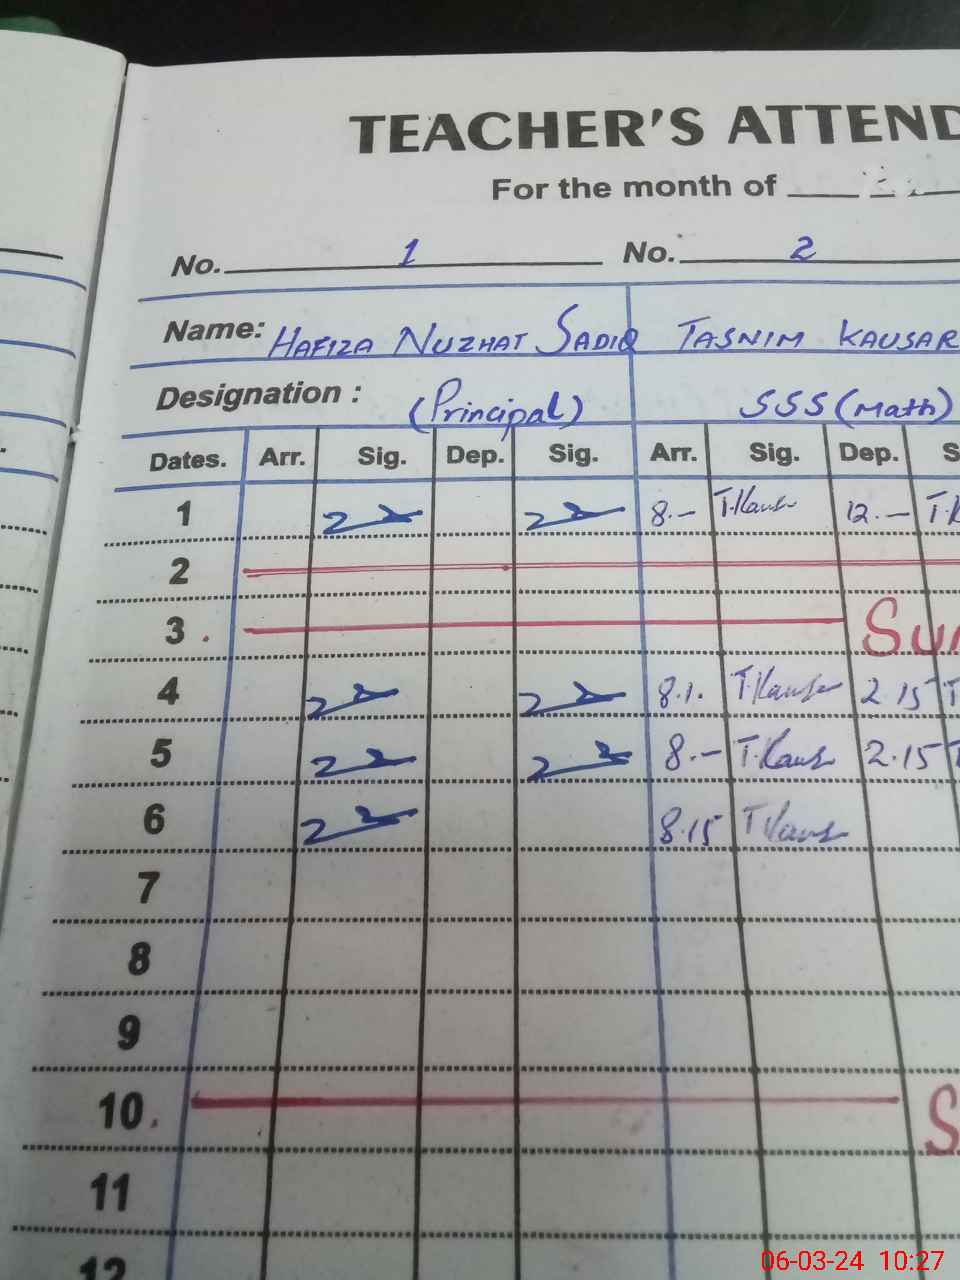 TEACHER'S ATTEND
For the month of
No. 1 No. 2
Name: HAFIZA NUZHAT SADIQ TASNIM KAUSAR
Designation : (Principal) SSS (Math)
Dates. Arr. Sig. Dep. Sig. Arr. Sig. Dep. S
1 8.— T.Kausr 12.— T.K
2
3 . Sun
4 8.1. T.Kausr 2.15 T
5 8.— T.Kausr 2.15 T
6 8.15 T.Kausr
7
8
9
10 . S
11
12
06-03-24 10:27